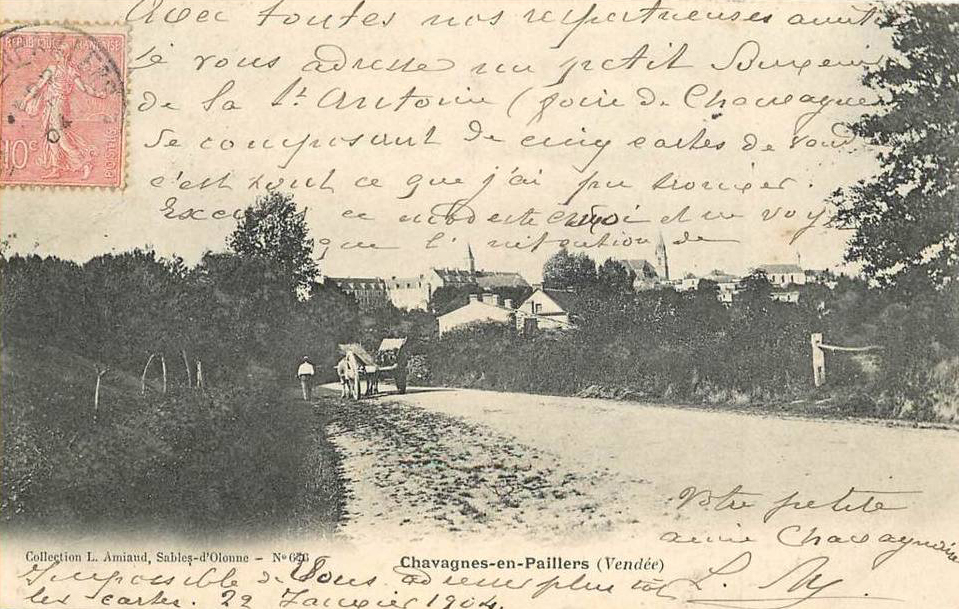 Avec toutes nos respectueuses amitiés
Je vous adresse un petit
de la St Antoine (foire de Chavagnes
se composant de cinq cartes de
c'est tout ce que j'ai pu trouver.
ce modeste envoi et ne
que l'intention de
REPUBLIQUE FRANÇAISE
10c
POSTES
04
Votre petite
amie Chavagnaise
Collection L. Amiaud, Sables-d'Olonne - No
Chavagnes-en-Paillers (Vendée)
Impossible de vous adresser plus tôt
les cartes. 22 Janvier 1904.